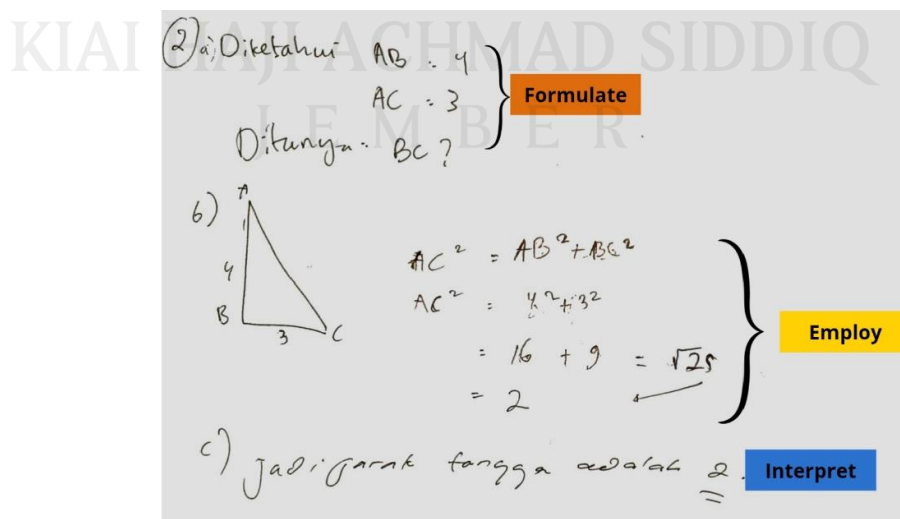 KIAI HAJI ACHMAD SIDDIQ
JEMBER
2 a) Diketahui AB : 4
AC : 3
Formulate
Ditanya : BC ?
b)
A
4
B
3
C
AC² = AB² + BC²
AC² : 4² + 3²
= 16 + 9 = √25
= 2
Employ
c) Jadi jarak tangga adalah 2.
Interpret